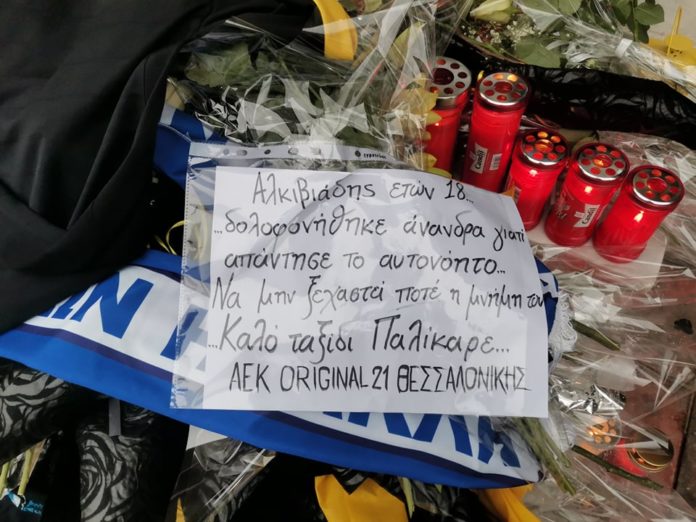 Αλκιβιάδης ετών 18...
...δολοφονήθηκε άνανδρα γιατί
απάντησε το αυτονόητο...
Να μην ξεχαστεί ποτέ η μνήμη του
...Καλό ταξίδι Παλίκαρε...
ΑΕΚ ORIGINAL 21 ΘΕΣΣΑΛΟΝΙΚΗΣ